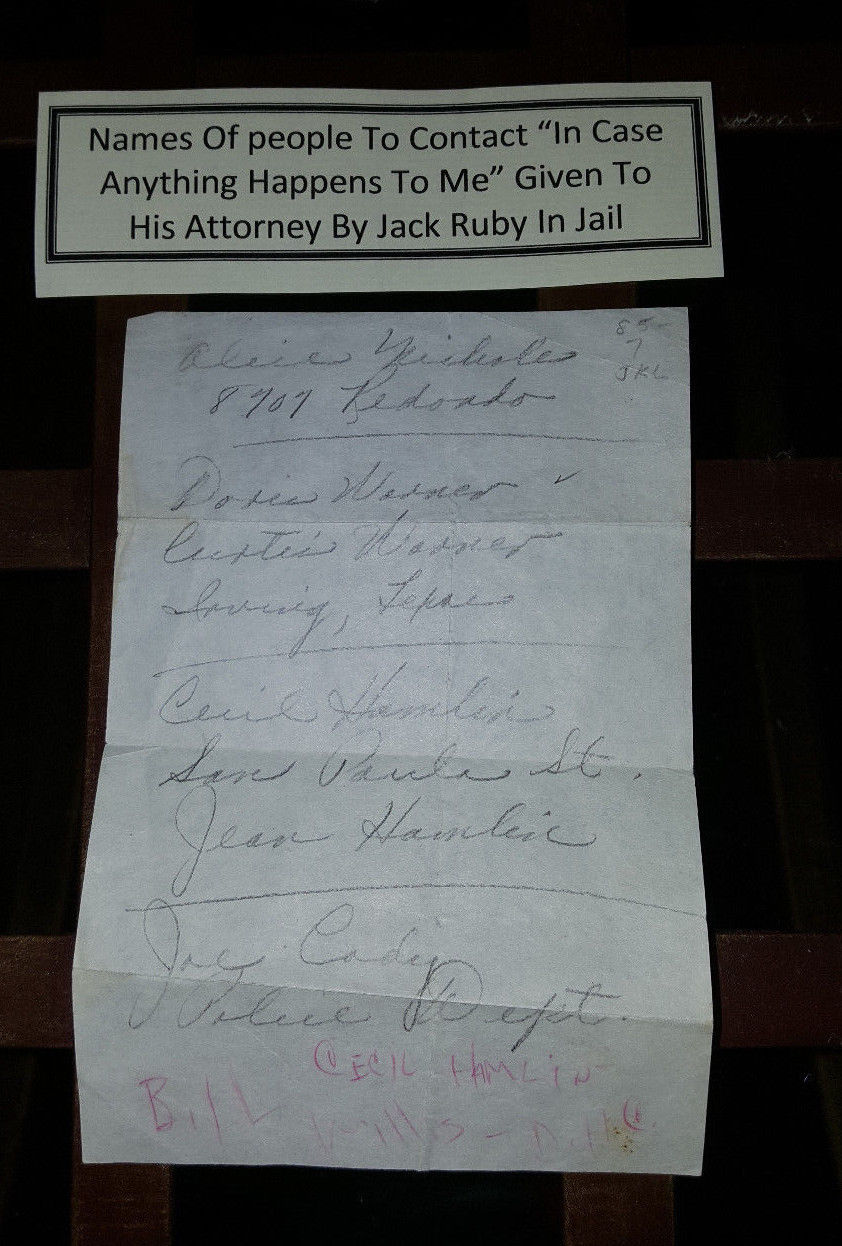 Names Of people To Contact “In Case
Anything Happens To Me” Given To
His Attorney By Jack Ruby In Jail
85-
7
JKL
Alice Nichols
8707 Redondo
Doris Warner ✓
Curtis Warner
Irving, Texas
Cecil Hamlin
San Paula St.
Jean Hamlin
Joe Cody
Police Dept.
CECIL HAMLIN
Bill